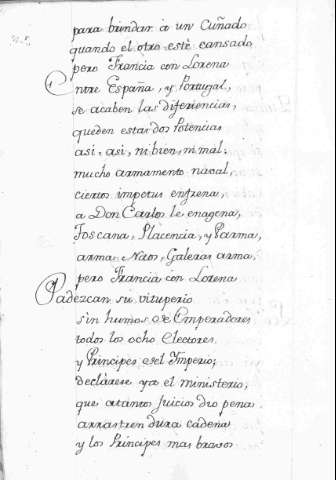 para brindar à un Cuñado
quando el otro esté cansado
pero Francia con Lorena
Entre España, y Portugal,
se acaben las diferiencias,
queden estas dos Potencias
asi, asi, ni bien, ni mal,
mucho armamento naval,
ciertos impetus enfrena,
a Don Carlos le enagena,
Toscana, Placencia, y Parma,
arma Navios, Galeras arma
pero Francia con Lorena
Padezcan su vituperio
sin humos de Emperadores
todos los ocho Electores
y Principes del Imperio;
declarese ya el ministerio,
que à tantos juicios dio pena
arrastren dura cadena
y los Principes mas bravos